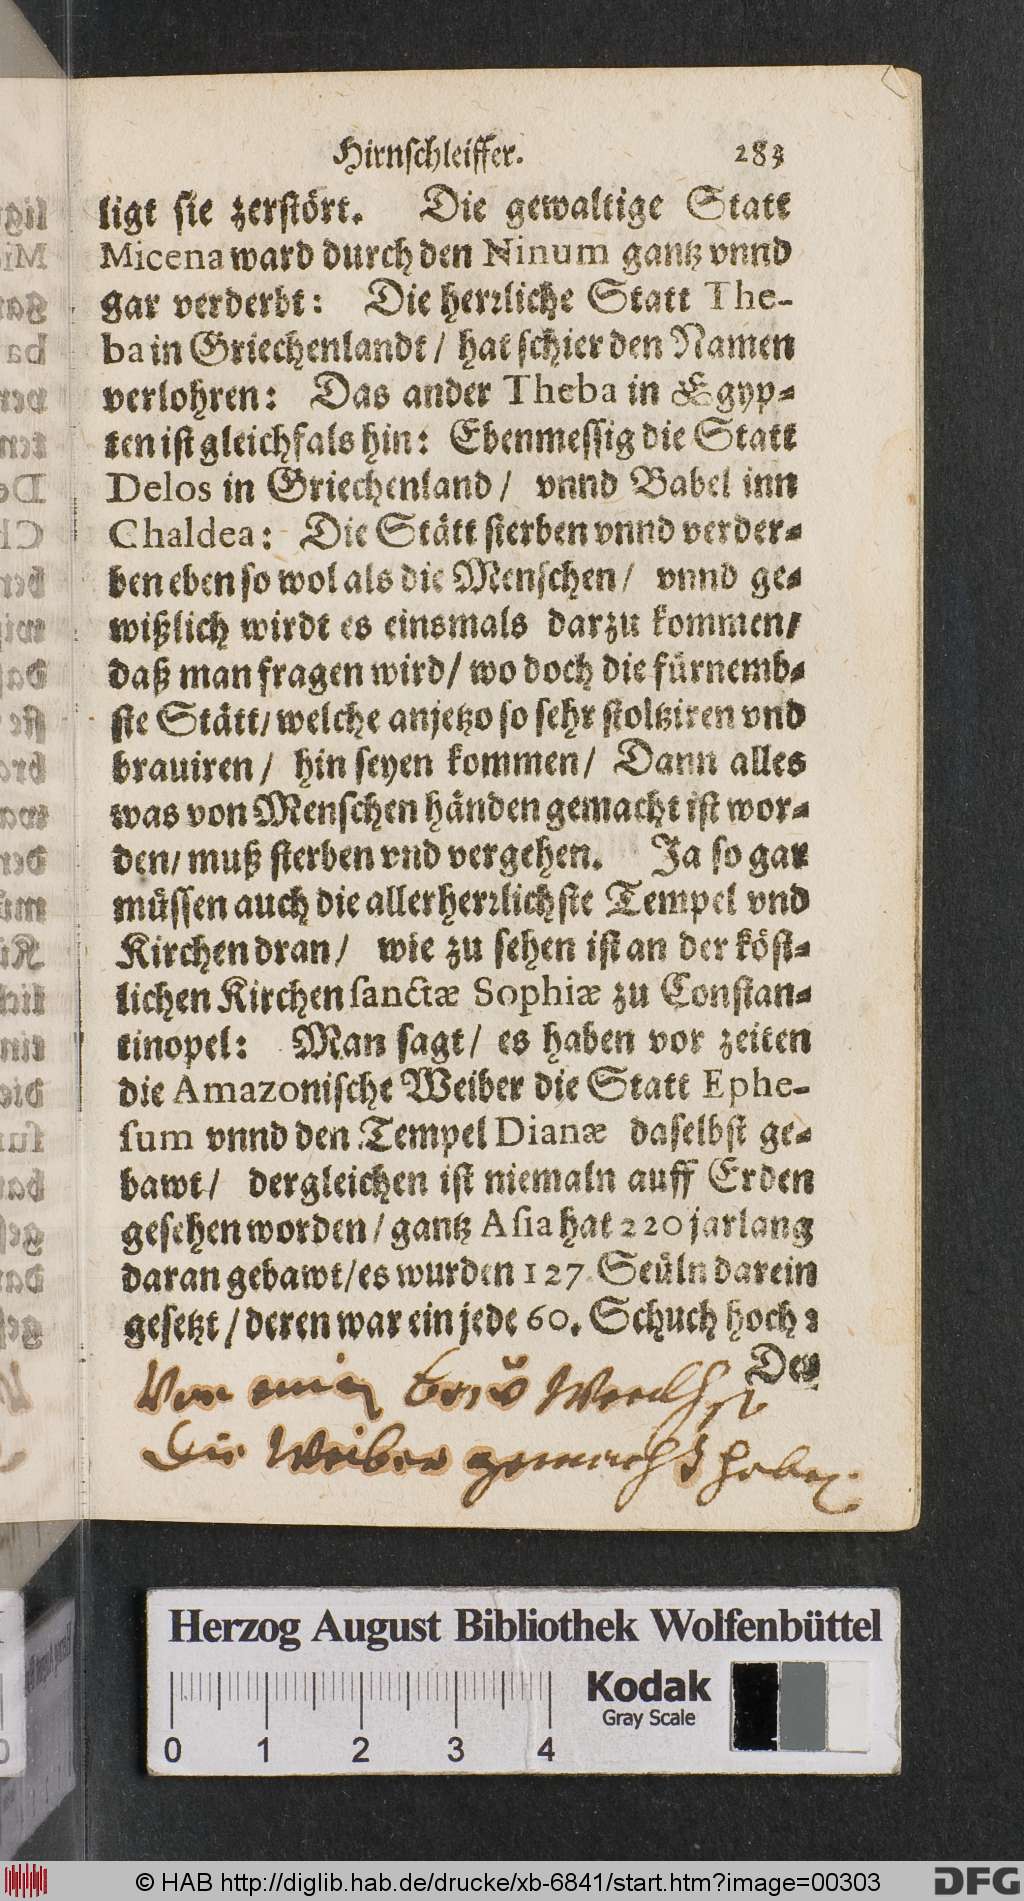 Hirnschleiffer. 283
ligt sie zerstört. Die gewaltige Statt
Micena ward durch den Ninum gantz vnnd
gar verderbt: Die herrliche Statt The-
ba in Griechenlandt / hat schier den Namen
verlohren: Das ander Theba in Egyp-
ten ist gleichfals hin: Ebenmessig die Statt
Delos in Griechenland / vnnd Babel inn
Chaldea: Die Stätt sterben vnnd verder-
ben eben so wol als die Menschen / vnnd ge-
wißlich wirdt es einsmals darzu kommen /
daß man fragen wird / wo doch die fürnemb-
ste Stätt / welche anjetzo so sehr stoltziren vnd
brauiren / hin seyen kommen / Dann alles
was von Menschen händen gemacht ist wor-
den / muß sterben vnd vergehen. Ja so gar
müssen auch die allerherrlichste Tempel vnd
Kirchen dran / wie zu sehen ist an der köst-
lichen Kirchen sanctæ Sophiæ zu Constan-
tinopel: Man sagt / es haben vor zeiten
die Amazonische Weiber die Statt Ephe-
sum vnnd den Tempel Dianæ daselbst ge-
bawt / dergleichen ist niemaln auff Erden
gesehen worden / gantz Asia hat 220 jar lang
daran gebawt / es wurden 127 Seüln darein
gesetzt / deren war ein jede 60. Schuch hoch:
Der
Von einen
Die Weiber gemacht haben.
Herzog August Bibliothek Wolfenbüttel
Kodak
Gray Scale
0 1 2 3 4
© HAB http://diglib.hab.de/drucke/xb-6841/start.htm?image=00303
DFG